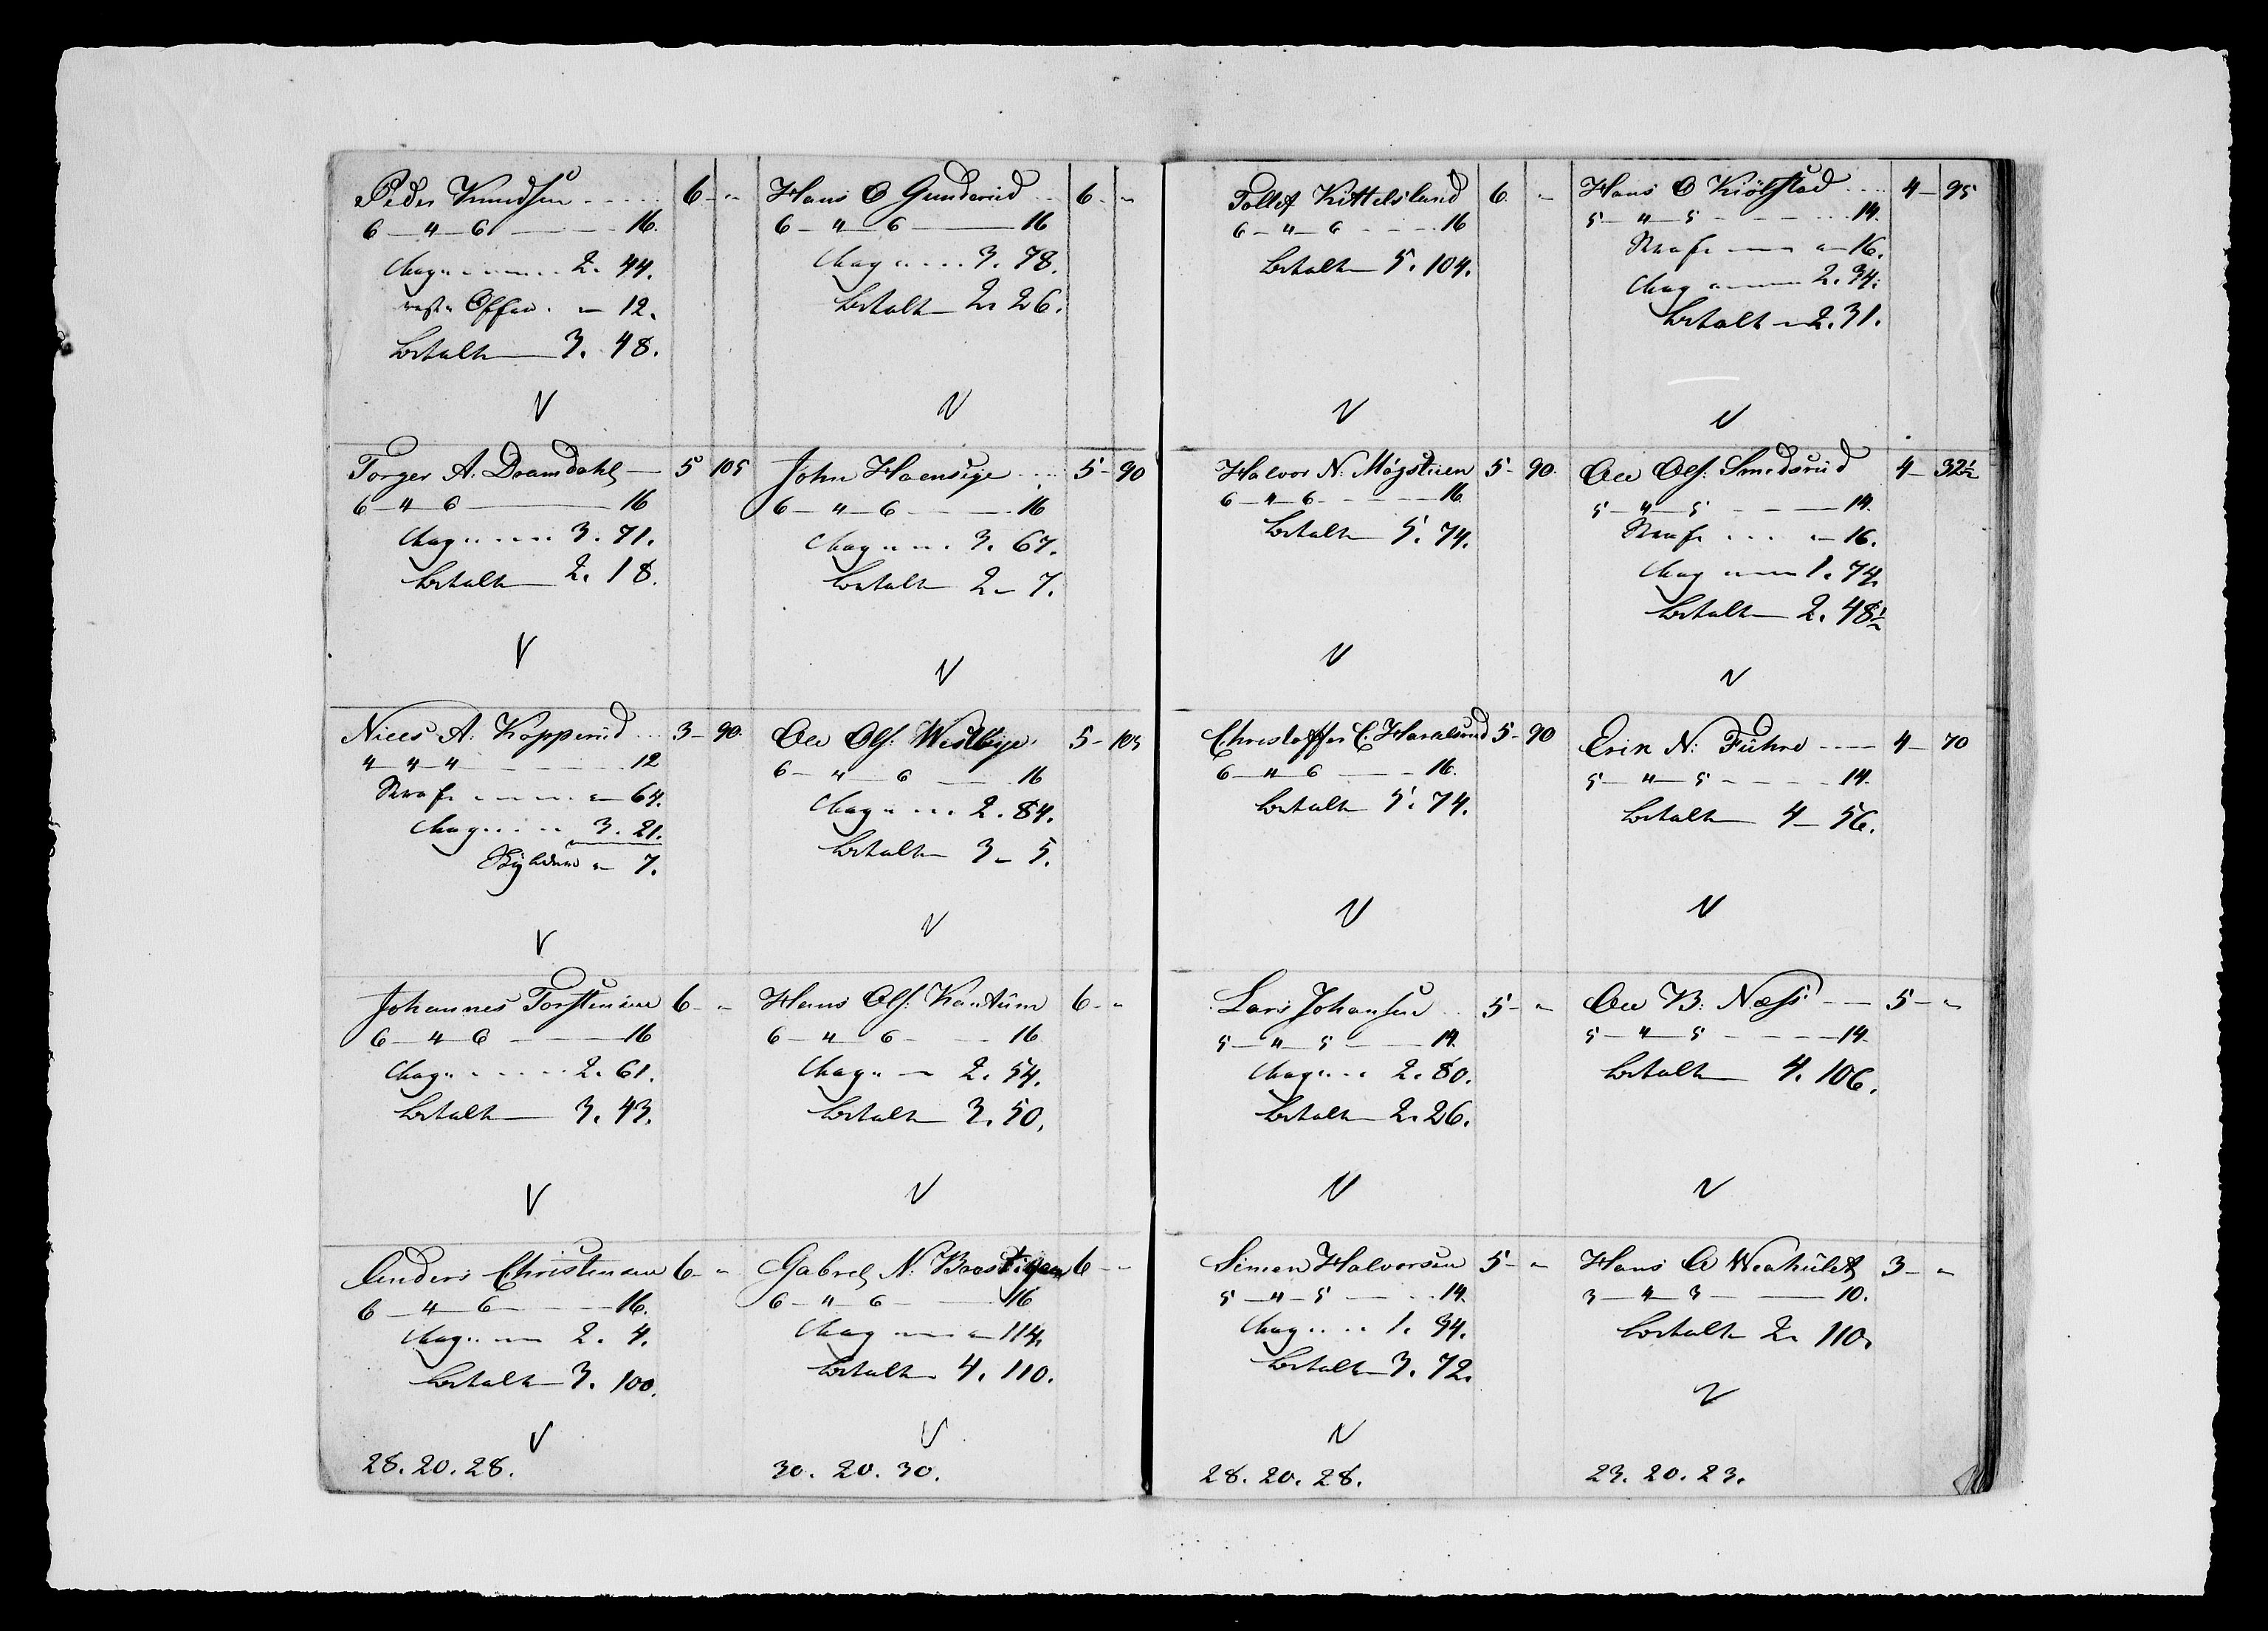 Peder Knudsen ..... 6 - "
6 — 4 — 6 — 16.
Mag ....... 2. 44.
" 12.
betalt — 3. 48.
V
Torger A. Dramdahl — 5 105
6 — 4 — 6 — 16
Mag ..... 3. 71.
betalt — 2. 18.
V
Niels A. Kopperud ... 3 - 90.
4 — 4 — 4 — 12
Straf ..... " 64.
Mag ..... 3. 21.
" 7.
V
Johannes Torstensen 6 - "
6 — 4 — 6 — 16
Mag ...... 2. 61.
betalt — 3. 43.
V
Anders Christensen 6 - "
6 — 4 — 6 — 16.
Mag .... 2. 4.
betalt — 3. 100.
V
28. 20. 28.
Hans O Gunderud .. 6 - "
6 — 4 — 6 — 16
Mag ..... 3. 78.
betalt — 2. 26.
V
John Haensige .... 5 - 90
6 — 4 — 6 — 16
Mag .... 3. 67.
betalt 2 - 7.
V
Ole Ols: Westbye 5 - 105
6 — 4 — 6 — 16
Mag .... 2. 84.
betalt 3 - 5.
V
Hans Ols: Kantum 6 - "
6 — 4 — 6 — 16
Mag .. — 2. 54.
betalt — 3. 50.
V
Gabrel N: 6 - "
6 — 4 — 6 — 16
Mag ... " 114.
betalt 4. 110.
V
30. 20. 30.
Tollef Kittelsland 6 "
6 — 4 — 6 — 16
betalt — 5. 104.
V
Halvor N: Møjstuen 5 - 90.
6 — 4 — 6 — 16
betalt — 5. 74.
V
Christoffer C. Haralsrud 5 - 90
6 — 4 — 6 — 16.
betalt 5. 74.
V
Lars Johansen .. 5 - "
5 — 4 — 5 — 14.
Mag .... 2. 80.
betalt — 2. 26.
V
Simen Halvorsen 5 - "
5 — 4 — 5 — 14.
Mag .... 1. 34.
betalt — 3. 72.
V
28. 20. 28.
Hans O Kiølstad .... 4 - 95
5 — 4 — 5 — 14.
Straf — " 16.
Mag .... 2. 34.
betalt — 2. 31.
V
Ole Ols: Smedsrud 4 - 32½
5 — 4 — 5 — 14.
Straf ... " 16.
Mag .... 1. 74.
betalt — 2. 48½
V
Erik N: Fuhre — 4 - 70
5 — 4 — 5 — 14.
betalt — 4 - 56.
V
Ole B: Næss — 5 - "
5 — 4 — 5 — 14.
betalt — 4. 106.
V
Hans A 3 - "
3 — 4 — 3 — 10.
betalt 2. 110.
V
23. 20. 23.